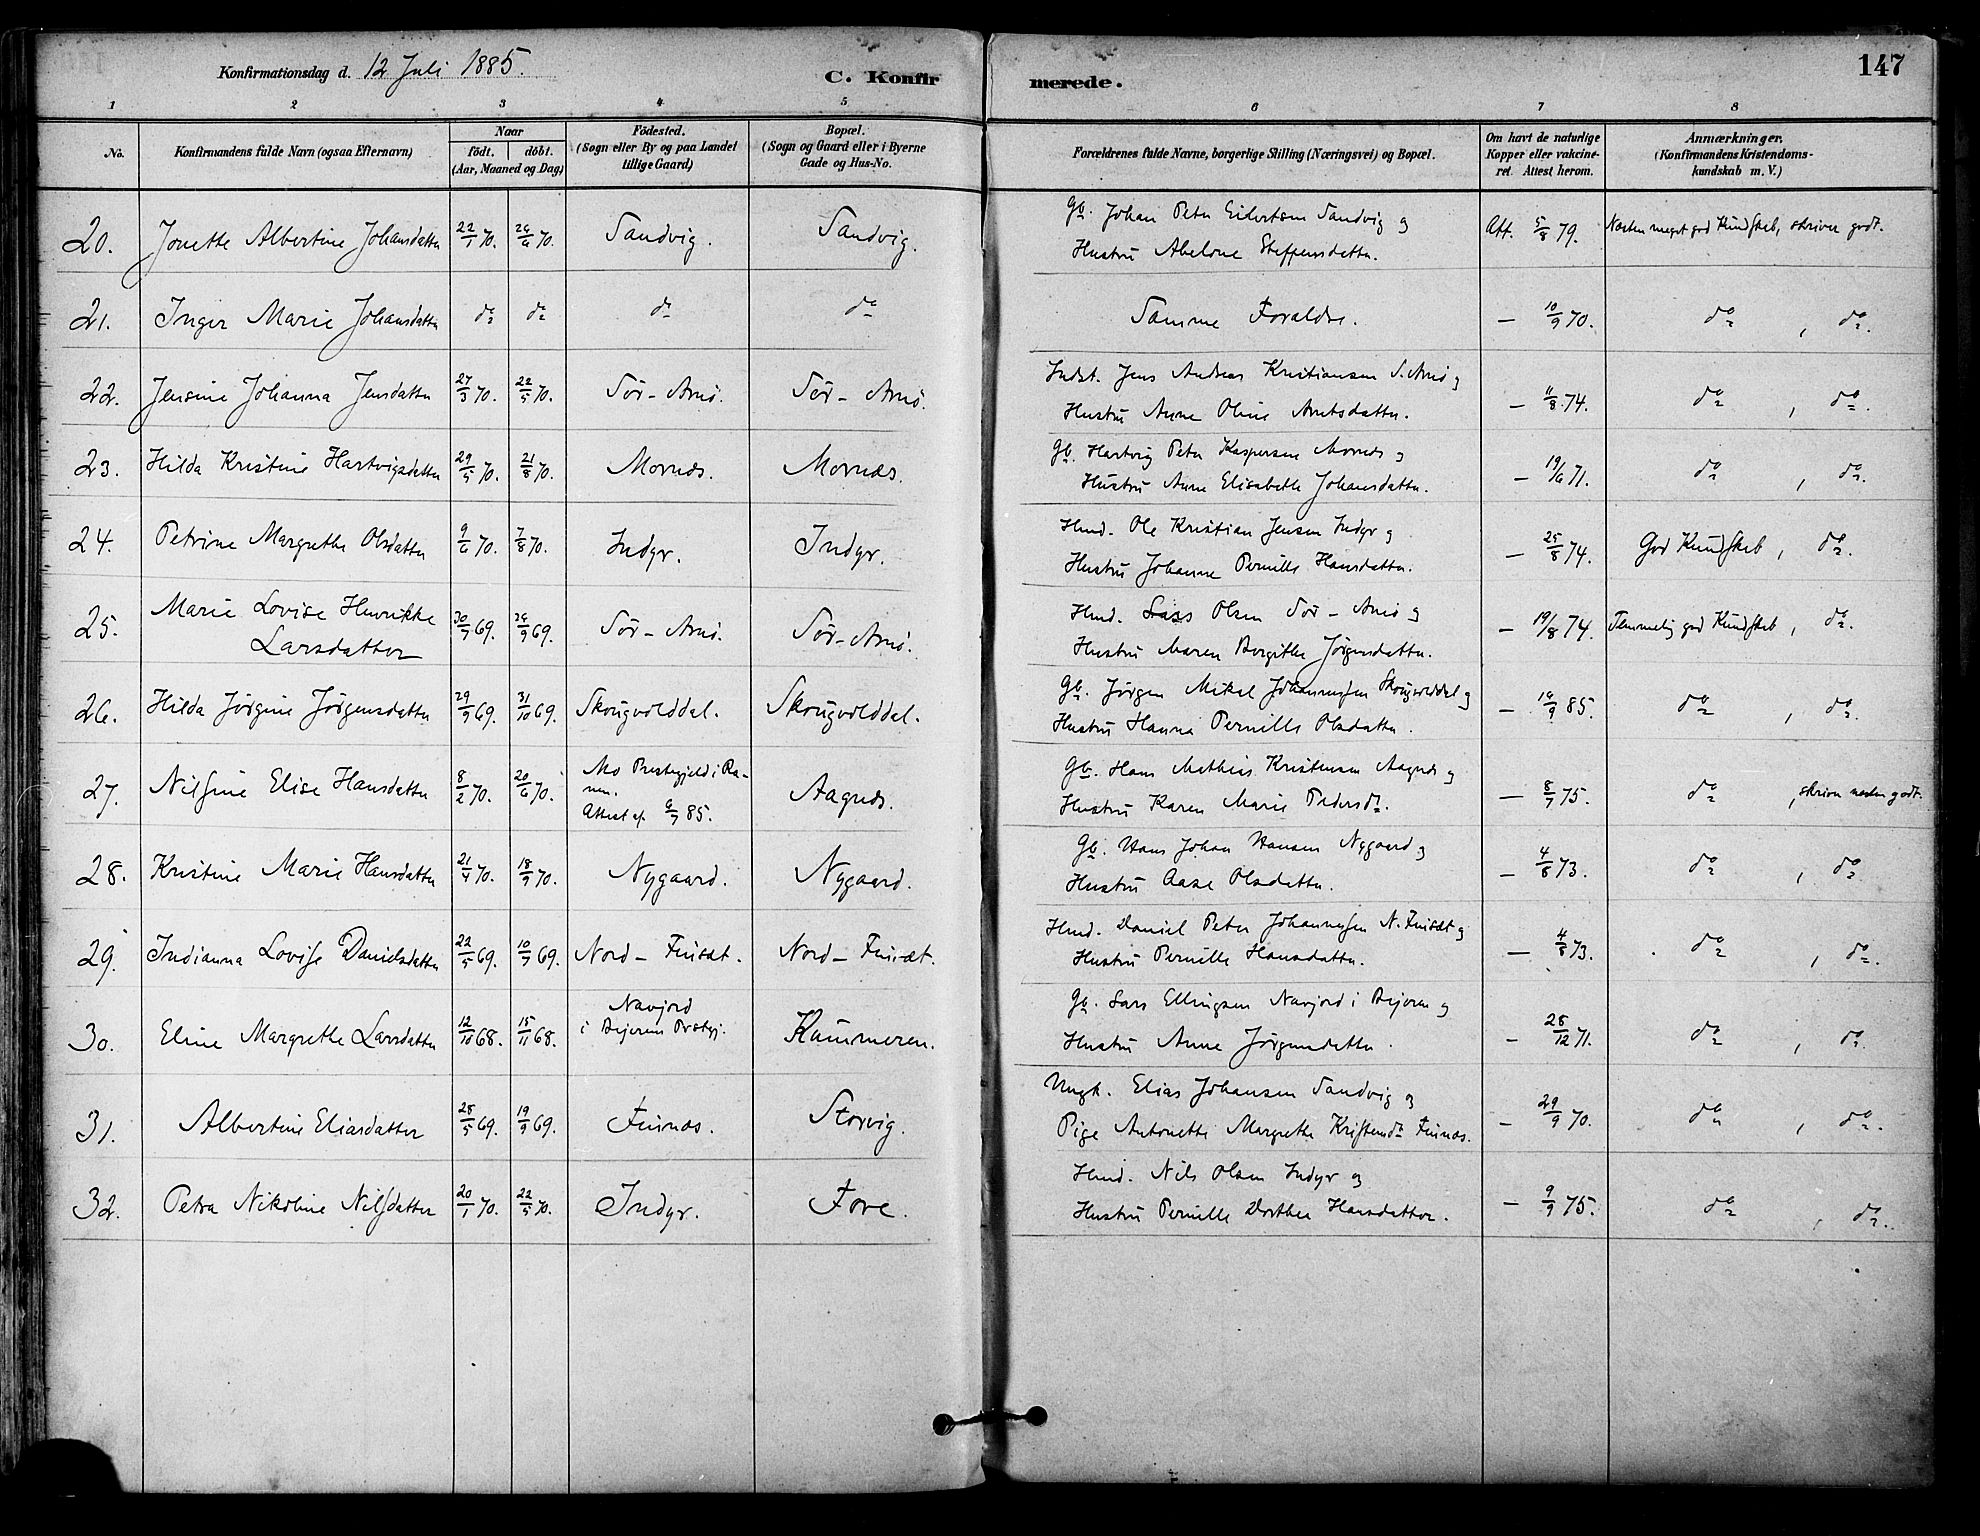 Konfirmationsdag d. 12 Juli 1885.
C. Konfir merede.
147
1 2 3 4 5 6 7 8
No.
Konfirmandens fulde Navn (ogsaa Efternavn)
Naar
födt. döbt.
(Aar, Maaned og Dag)
Födested.
(Sogn eller By og paa Landet
tillige Gaard)
Bopæl.
(Sogn og Gaard eller i Byerne
Gade og Hus-No.
Forældrenes fulde Navne, borgerlige Stilling (Næringsvei) og Bopæl.
Om havt de naturlige
Kopper eller vakcine-
ret. Attest herom.
Anmærkninger.
(Konfirmandens Kristendoms-
kundskab m. V.)
20. Jonette Albertine Johansdatter 22/1 70. 26/6 70. Sandvig. Sandvig.
Gb. Johan Peter Eilertsen Sandvig og
Hustru Abelone Steffensdatter.
Att. 5/8 79. Næsten meget god Kundskab, skriver godt.
21. Inger Marie Johansdatter do do do do
Samme Forældre. — 10/9 70. do, do.
22. Jensine Johanna Jensdatter 27/3 70. 22/5 70. Sör-Arnö. Sör-Arnö.
Indst. Jens Andreas Kristiansen S. Arnö og
Hustru Anne Oline Arntsdatter.
— 11/8 74. do, do.
23. Hilda Kristine Hartvigsdatter 29/5 70. 21/8 70. Mornæs. Mornæs.
Gb. Hartvig Peter Kaspersen Mornæs og
Hustru Anne Elisabeth Johansdatter.
— 19/6 71. do, do.
24. Petrine Margrethe Olsdatter 9/6 70. 7/8 70. Indyr. Indyr.
Hmd. Ole Kristian Jensen Indyr og
Hustru Johanne Pernille Hansdatter.
— 25/8 74. God Kundskab, do.
25. Marie Lovise Henrikke
Larsdatter 30/7 69. 26/9 69. Sör-Arnö. Sör-Arnö.
Hmd. Lars Olsen Sör-Arnö og
Hustru Maren Bergithe Jörgensdatter.
— 19/8 74. Temmelig god Kundskab, do.
26. Hilda Jörgine Jörgensdatter 29/9 69. 31/10 69. Skougvolddal. Skougvolddal.
Gb. Jörgen Mikal Johannessen Skougvolddal og
Hustru Hanna Pernille Olsdatter.
— 16/9 85. do, do.
27. Nilsine Elise Hansdatter 8/2 70. 20/6 70. Mo Prestegjeld i Ra-
nen.
Attest af 6/7 85. Aagnes.
Gb. Hans Mathias Kristensen Aagnes og
Hustru Karen Marie Pedersdr
— 8/7 75. do, skriver næsten godt.
28. Kristine Marie Hansdatter 21/4 70. 18/9 70. Nygaard. Nygaard.
Gb. Hans Johan Hansen Nygaard og
Hustru Aase Olsdatter.
— 4/8 73. do, do.
29. Indianna Lovise Danielsdatter 22/5 69. 10/7 69. Nord-Finsæt. Nord-Finsæt.
Hmd. Daniel Peter Johannessen N. Finsæt og
Hustru Pernille Hansdatter.
— 4/8 73. do, do.
30. Eline Margrethe Larsdatter 12/10 68. 15/11 68. Navjord
i Bejeren Prstgj. Kummeren.
Gb. Lars Ellingsen Navjord i Bejeren og
Hustru Anne Jörgensdatter.
— 28/12 71. do, do.
31. Albertine Eliasdatter 28/5 69. 19/9 69. Finnæs. Storvig.
Ungk. Elias Johansen Sandvig og
Pige Antonette Margrethe Kristensdr Finnæs.
— 29/9 70. do, do.
32. Petra Nikoline Nilsdatter 20/1 70. 22/5 70. Indyr. Fore.
Hmd. Nils Olsen Indyr og
Hustru Pernille Dorthea Hansdatter.
— 9/9 75. do, do.